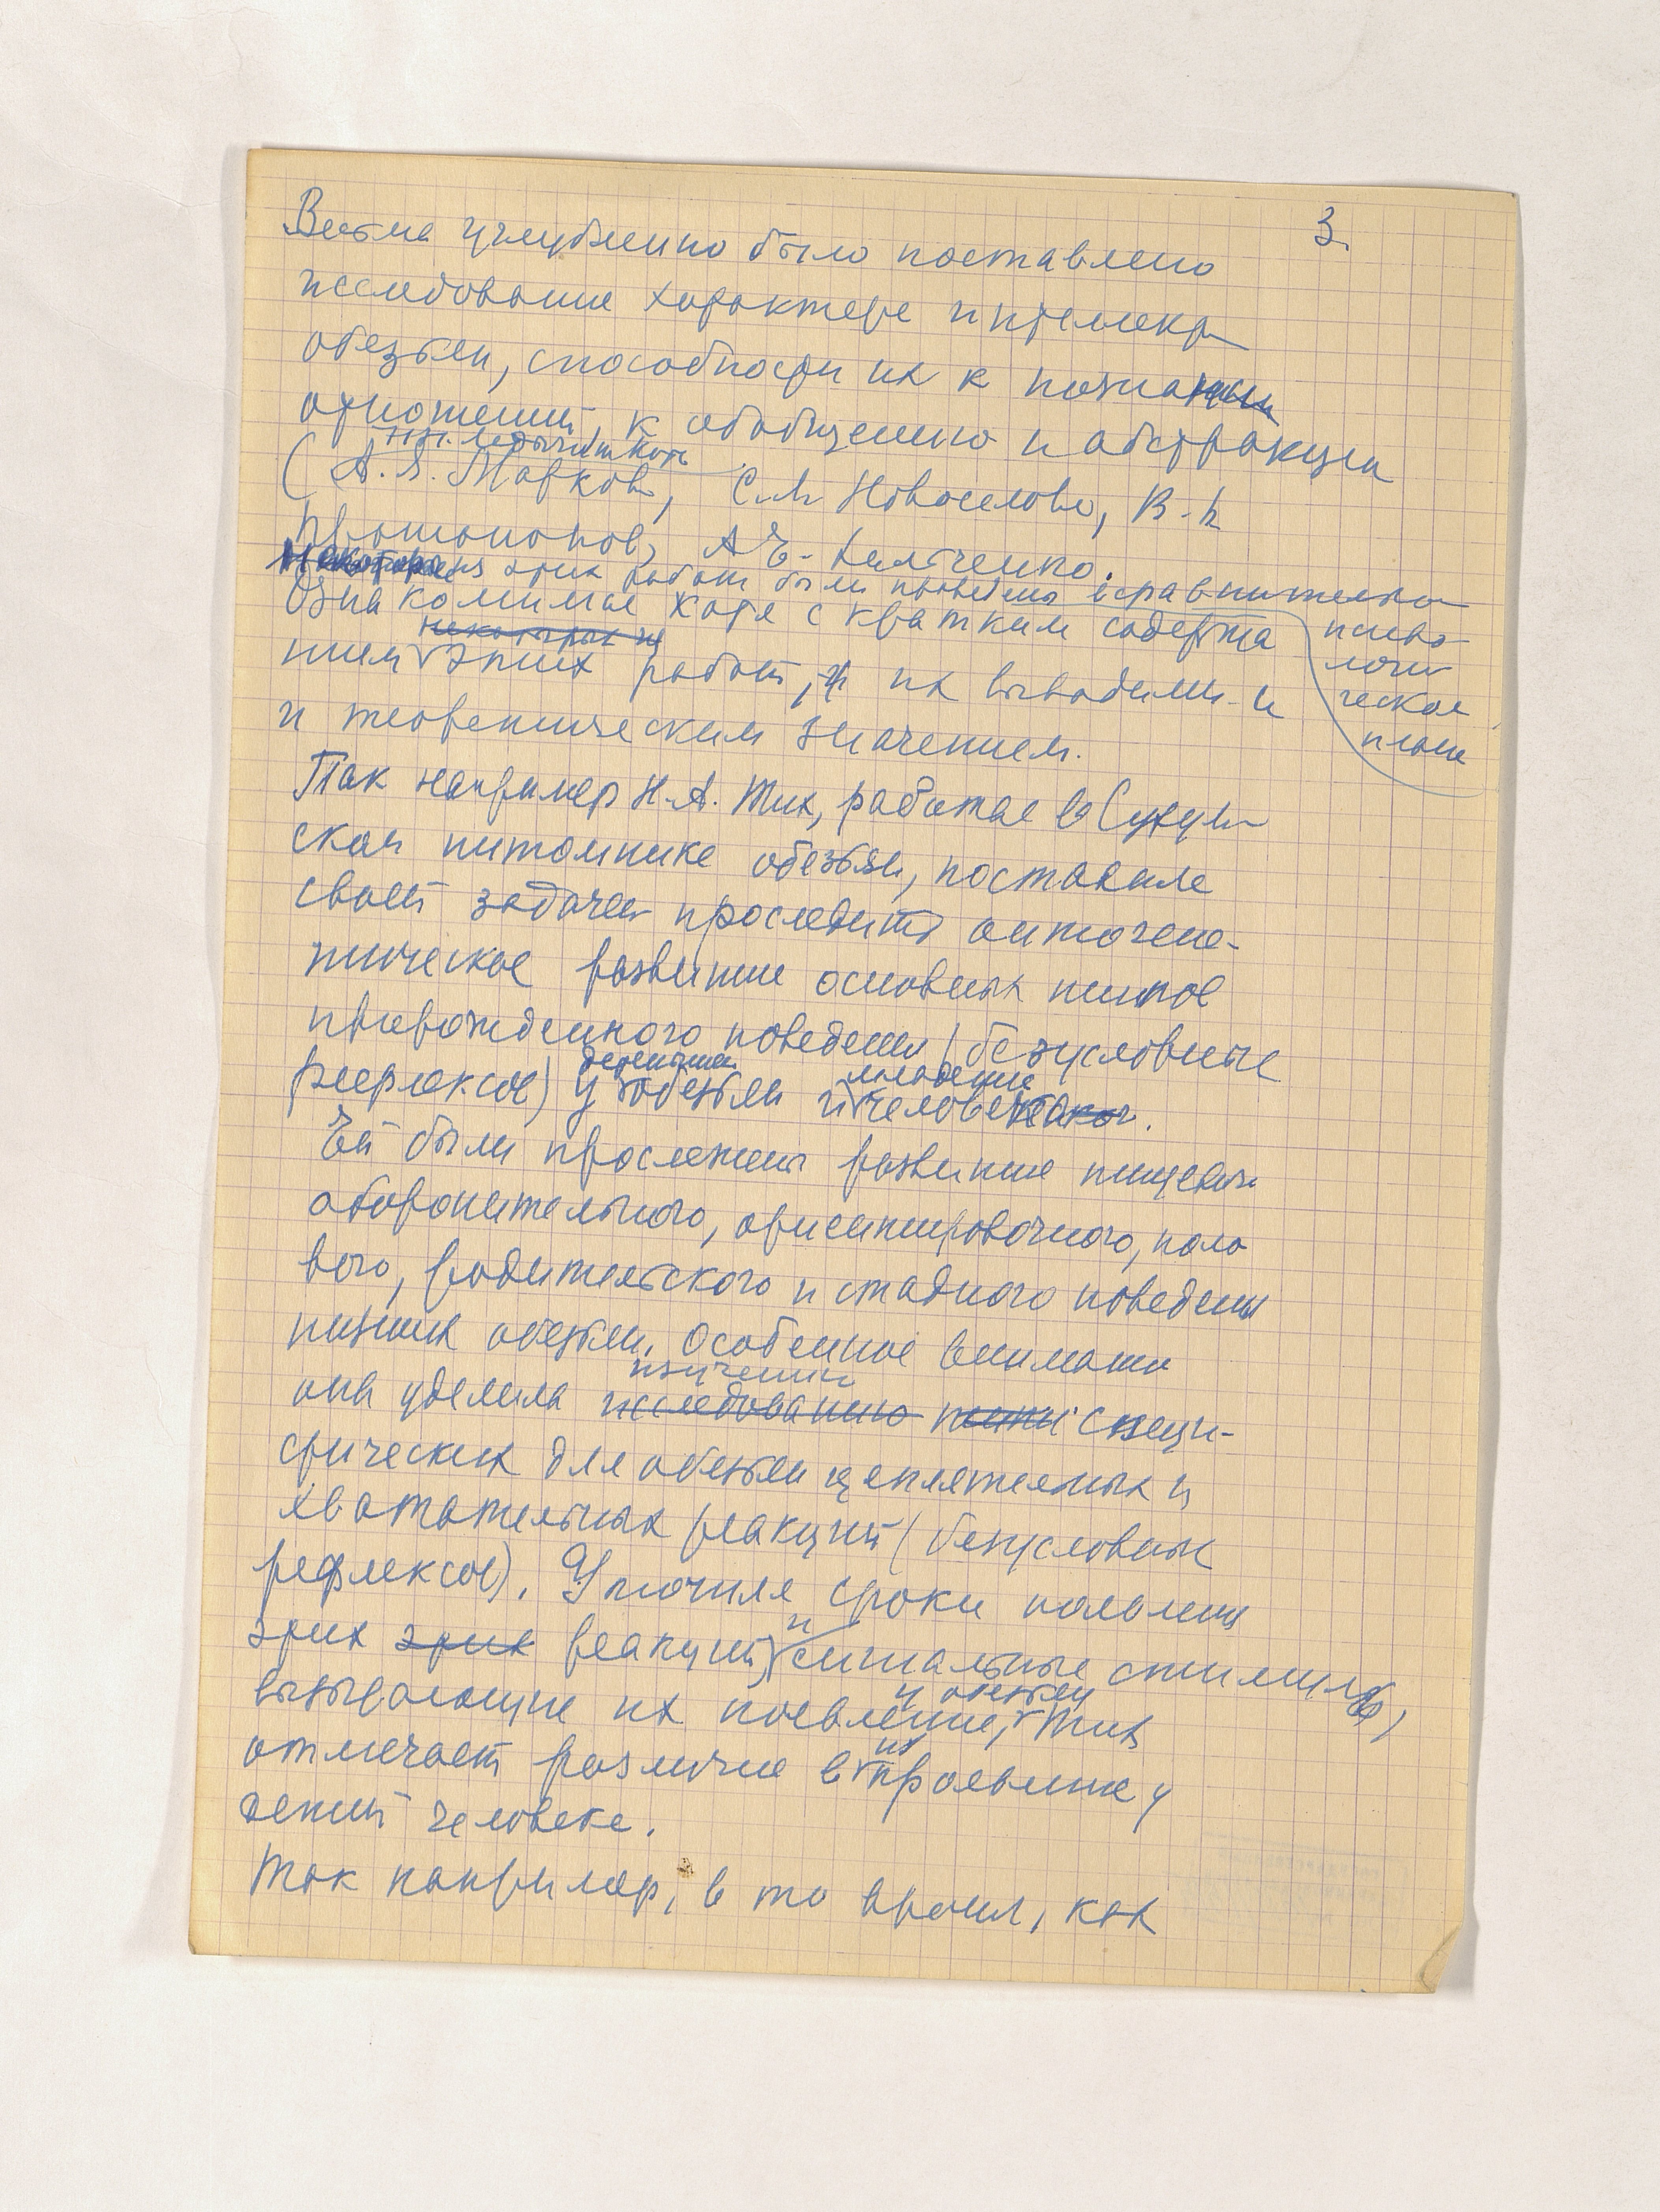 3.
Весьма углубленно было поставлено
исследование характера интеллекта
обезьян, способности их к познанию
отношений, к обобщению и абстракции
Н.Н. Ладыгина-Котс
(А.Я. Маркова, С.Л. Новоселова, В.П.
Протопопов, А.Е. Хильченко.
Некоторые из этих работ были проведены в сравнительно
психо-
логи-
ческом
плане
Ознакомимся хотя с кратким содержа
некоторых из
нием этих работ, и их выводами и
и теоретическим значением.
Так например Н.А. Тих, работая в Сухум-
ском питомнике обезьян, поставила
своей задачей проследить онтогене-
тическое развитие основных типов
прирожденного поведения (безусловные
детенышей младенцев
рефлексов) у обезьян и человека.
Ей были прослежены развитие пищевого
оборонительного, ориентировочного, поло
вого, родительского и стадного поведения
низших обезьян. Особенное внимание
изучению
она уделила исследованию специ-
фических для обезьян цеплятельных и
хватательных реакций (безусловных
рефлексов). Уточняя сроки появления
и
этих этих реакций, сигнальные стимулы,
у обезьян
вызывающие их появление, Тих
их
отмечает различие в проявлении у
детей человека.
Так например, в то время, как